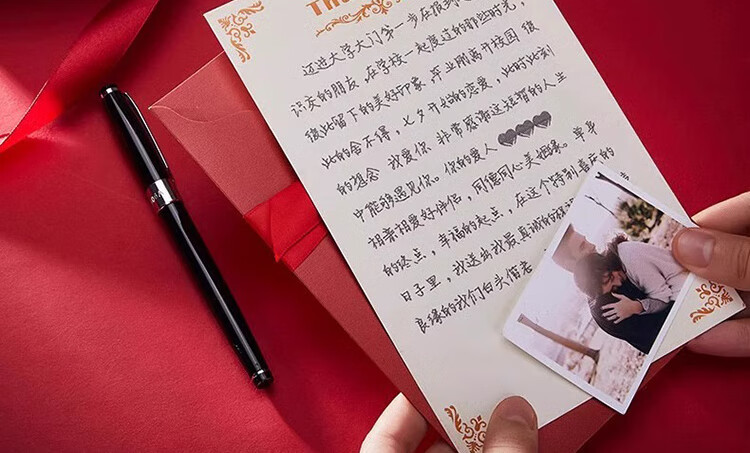 迈进大学大门第一步在报到
识友的朋友,在学校一起度过的那些时光,
彼此留下的美好印象,毕业刚离开校园彼
此的舍不得,七夕开始的恋爱,此时此刻
的想念 我爱你 非常感谢这短暂的人生
中能够遇见你。你的爱人
相亲相爱好伴侣,同德同心美姻缘。单身
的终点,幸福的起点,在这个特别喜庆的
日子里,我送出我最真诚的祝
良缘的我们白头偕老